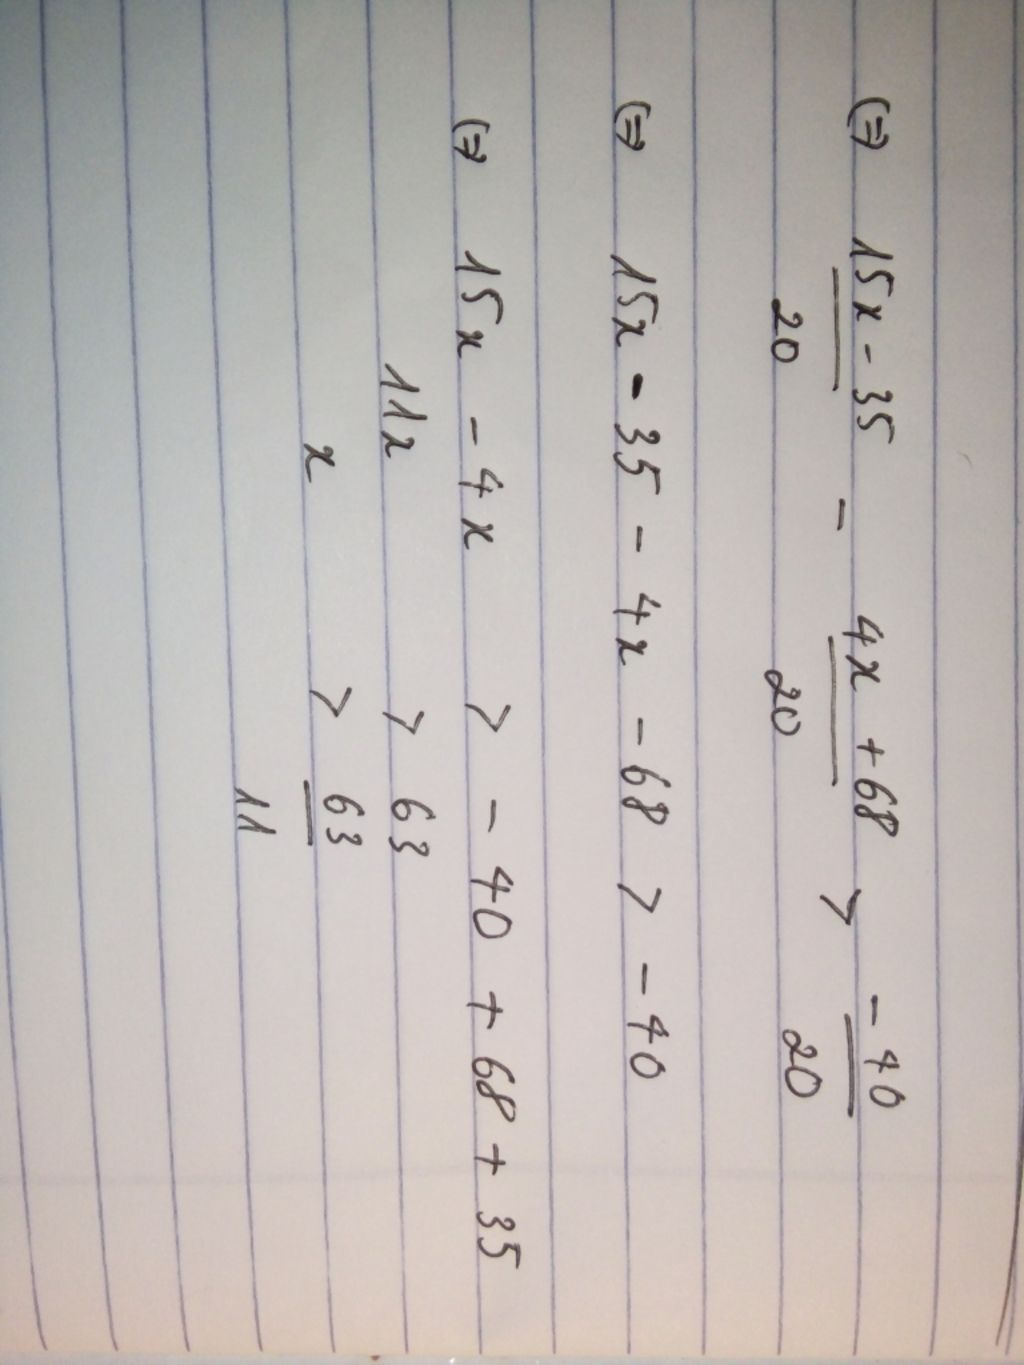 (=) 15x - 35 - 4x + 68 > - 40
20 20 20
(=) 15x - 35 - 4x - 68 > - 40
(=) 15x - 4x > - 40 + 68 + 35
11x > 63
x > 63
11